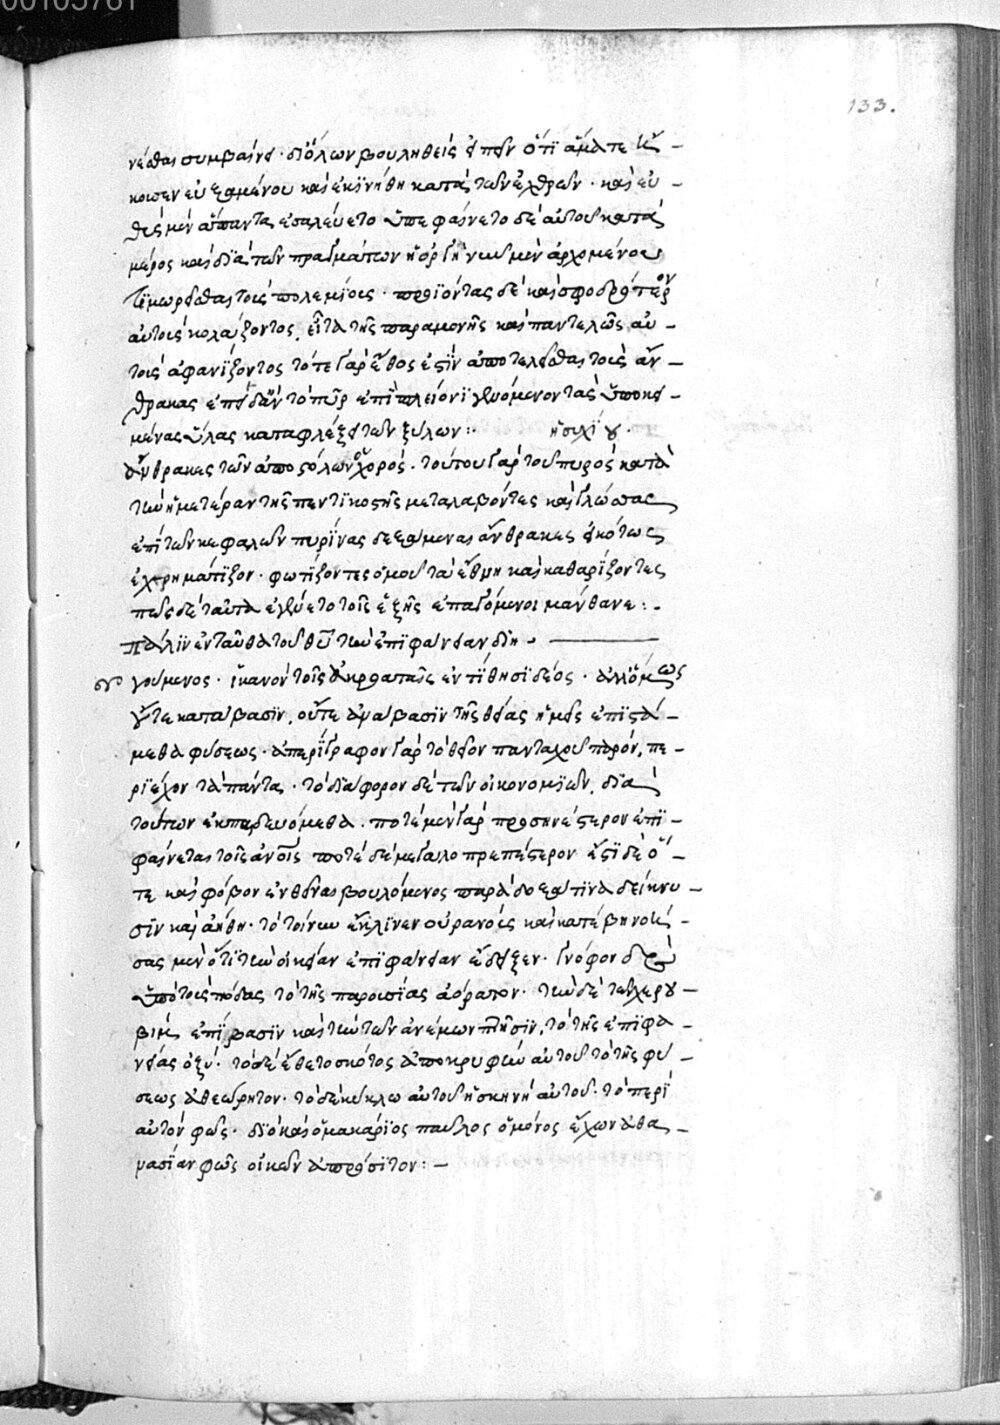 00105761
133.
νέσθαι συμβαίνει· δι' ὅλων βουληθεὶς εἰπεῖν ὅτι ἅμα τε ἤ-
κουσεν εὐξαμένου καὶ ἐκινήθη κατὰ τῶν ἐχθρῶν· καὶ εὐ-
θὺς μὲν ἅπαντα ἐσαλεύετο ὑπεφαίνετο δὲ αὐτοῦ κατὰ
μέρος καὶ διὰ τῶν πραγμάτων ἡ ὀργὴ νῦν μὲν ἀρχομένου
τιμωρεῖσθαι τοὺς πολεμίους· προϊόντας δὲ καὶ σφοδρότερον
αὐτοὺς κολάζοντος, εἶτα τῆς παραμονῆς καὶ παντελῶς αὐ-
τοὺς ἀφανίζοντος τότε γὰρ ἔθος ἐστὶν ἀποτελεῖσθαι τοὺς ἄν-
θρακας ἐπειδὰν τὸ πῦρ ἐπιπλεῖον γινόμενον τὰς ὑποκει-
μένας ὕλας καταφλέξει τῶν ξύλων:· ἡσυχίου·
ἄνθρακες τῶν ἀποστόλων ὁ χορός· τούτου γὰρ τοῦ πυρὸς κατὰ
τὴν ἡμετέραν τῆς πεντικοστῆς μεταλαβόντες καὶ γλώσσας
ἐπὶ τῶν κεφαλῶν πυρίνας δεξάμενοι ἄνθρακες εἰκότως
ἐχρημάτιζον· φωτίζοντες ὁμοῦ τὰ ἔθνη καὶ καθαρίζοντες
πῶς δὲ ταῦτα ἐγένετο τοῖς ἑξῆς ἐπαγόμενοι μάνθανε:·
πάλιν ἐνταῦθα τοῦ θυ τὴν ἐπιφάνειαν διη-
γούμενος· ἱκανὸν τοῖς ἀκροαταῖς ἐντίθησι δέος· ἀλλ' ὅμως
οὔτε κατάβασιν, οὔτε ἀνάβασιν τῆς θείας ἡμεῖς ἐπιστά-
μεθα φύσεως· ἀπερίγραφον γὰρ τὸ θεῖον πανταχοῦ παρόν, πε-
ριέχον τὰ πάντα· τὸ διάφορον δὲ τῶν οἰκονομιῶν, διὰ
τούτων ἐκπαιδευόμεθα. ποτὲ μὲν γὰρ προσηνέστερον ἐπι-
φαίνεται τοῖς ἀνοις ποτὲ δὲ μεγαλοπρεπέστερον ἔστι δὲ ὅ-
τε καὶ φόβον ἐνθεῖναι βουλόμενος παράδοξά τινα δείκνυ-
σιν καὶ ἀήθη· τὸ τοίνυν ἔκλινεν οὐρανοὺς καὶ κατέβη νοή-
σας μὲν ὅτι τὴν οἰκείαν ἐπιφάνειαν ἔδειξεν· γνόφον δὲ
ὑπὸ τοὺς πόδας τὸ τῆς παρουσίας ἀόρατον· τὴν δὲ τῶν χερου-
βὶμ ἐπίβασιν καὶ τὴν τῶν ἀνέμων πτῆσιν, τὸ τῆς ἐπιφα-
νείας ὀξύ· τὸ δὲ ἔθετο σκότος ἀποκρυφὴν αὐτοῦ τὸ τῆς φύ-
σεως ἀθεώρητον· τὸ δὲ κύκλω αὐτοῦ ἡ σκηνὴ αὐτοῦ· τὸ περὶ
αὐτὸν φῶς· διὸ καὶ ὁ μακάριος παῦλος ὁ μόνος ἔχων ἀθα-
νασίαν φῶς οἰκῶν ἀπρόσιτον:-